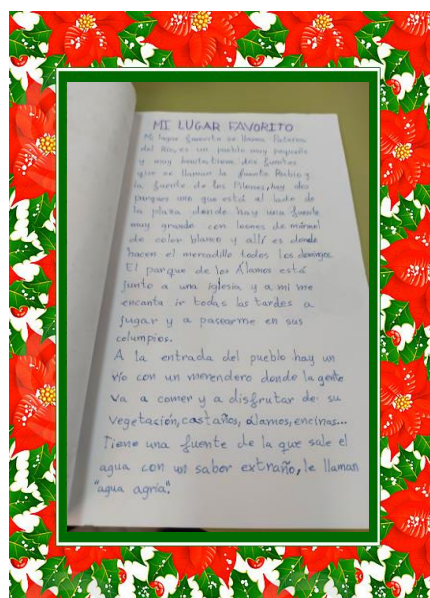 MI LUGAR FAVORITO
Mi lugar favorito se llama Paterna
del Río, es un pueblo muy pequeño
y muy bonito, tiene dos fuentes
que se llaman la fuente Rubio y
la fuente de los Pilones, hay dos
parques uno que está al lado de
la plaza donde hay una fuente
muy grande con leones de mármol
de color blanco y allí es donde
hacen el mercadillo todos los domingos.
El parque de los Álamos está
junto a una iglesia y a mi me
encanta ir todas las tardes a
jugar y a pasearme en sus
columpios.
A la entrada del pueblo hay un
río con un merendero donde la gente
va a comer y a disfrutar de su
vegetación, castaños, álamos, encinas...
Tiene una fuente de la que sale el
agua con un sabor extraño, le llaman
"agua agria".